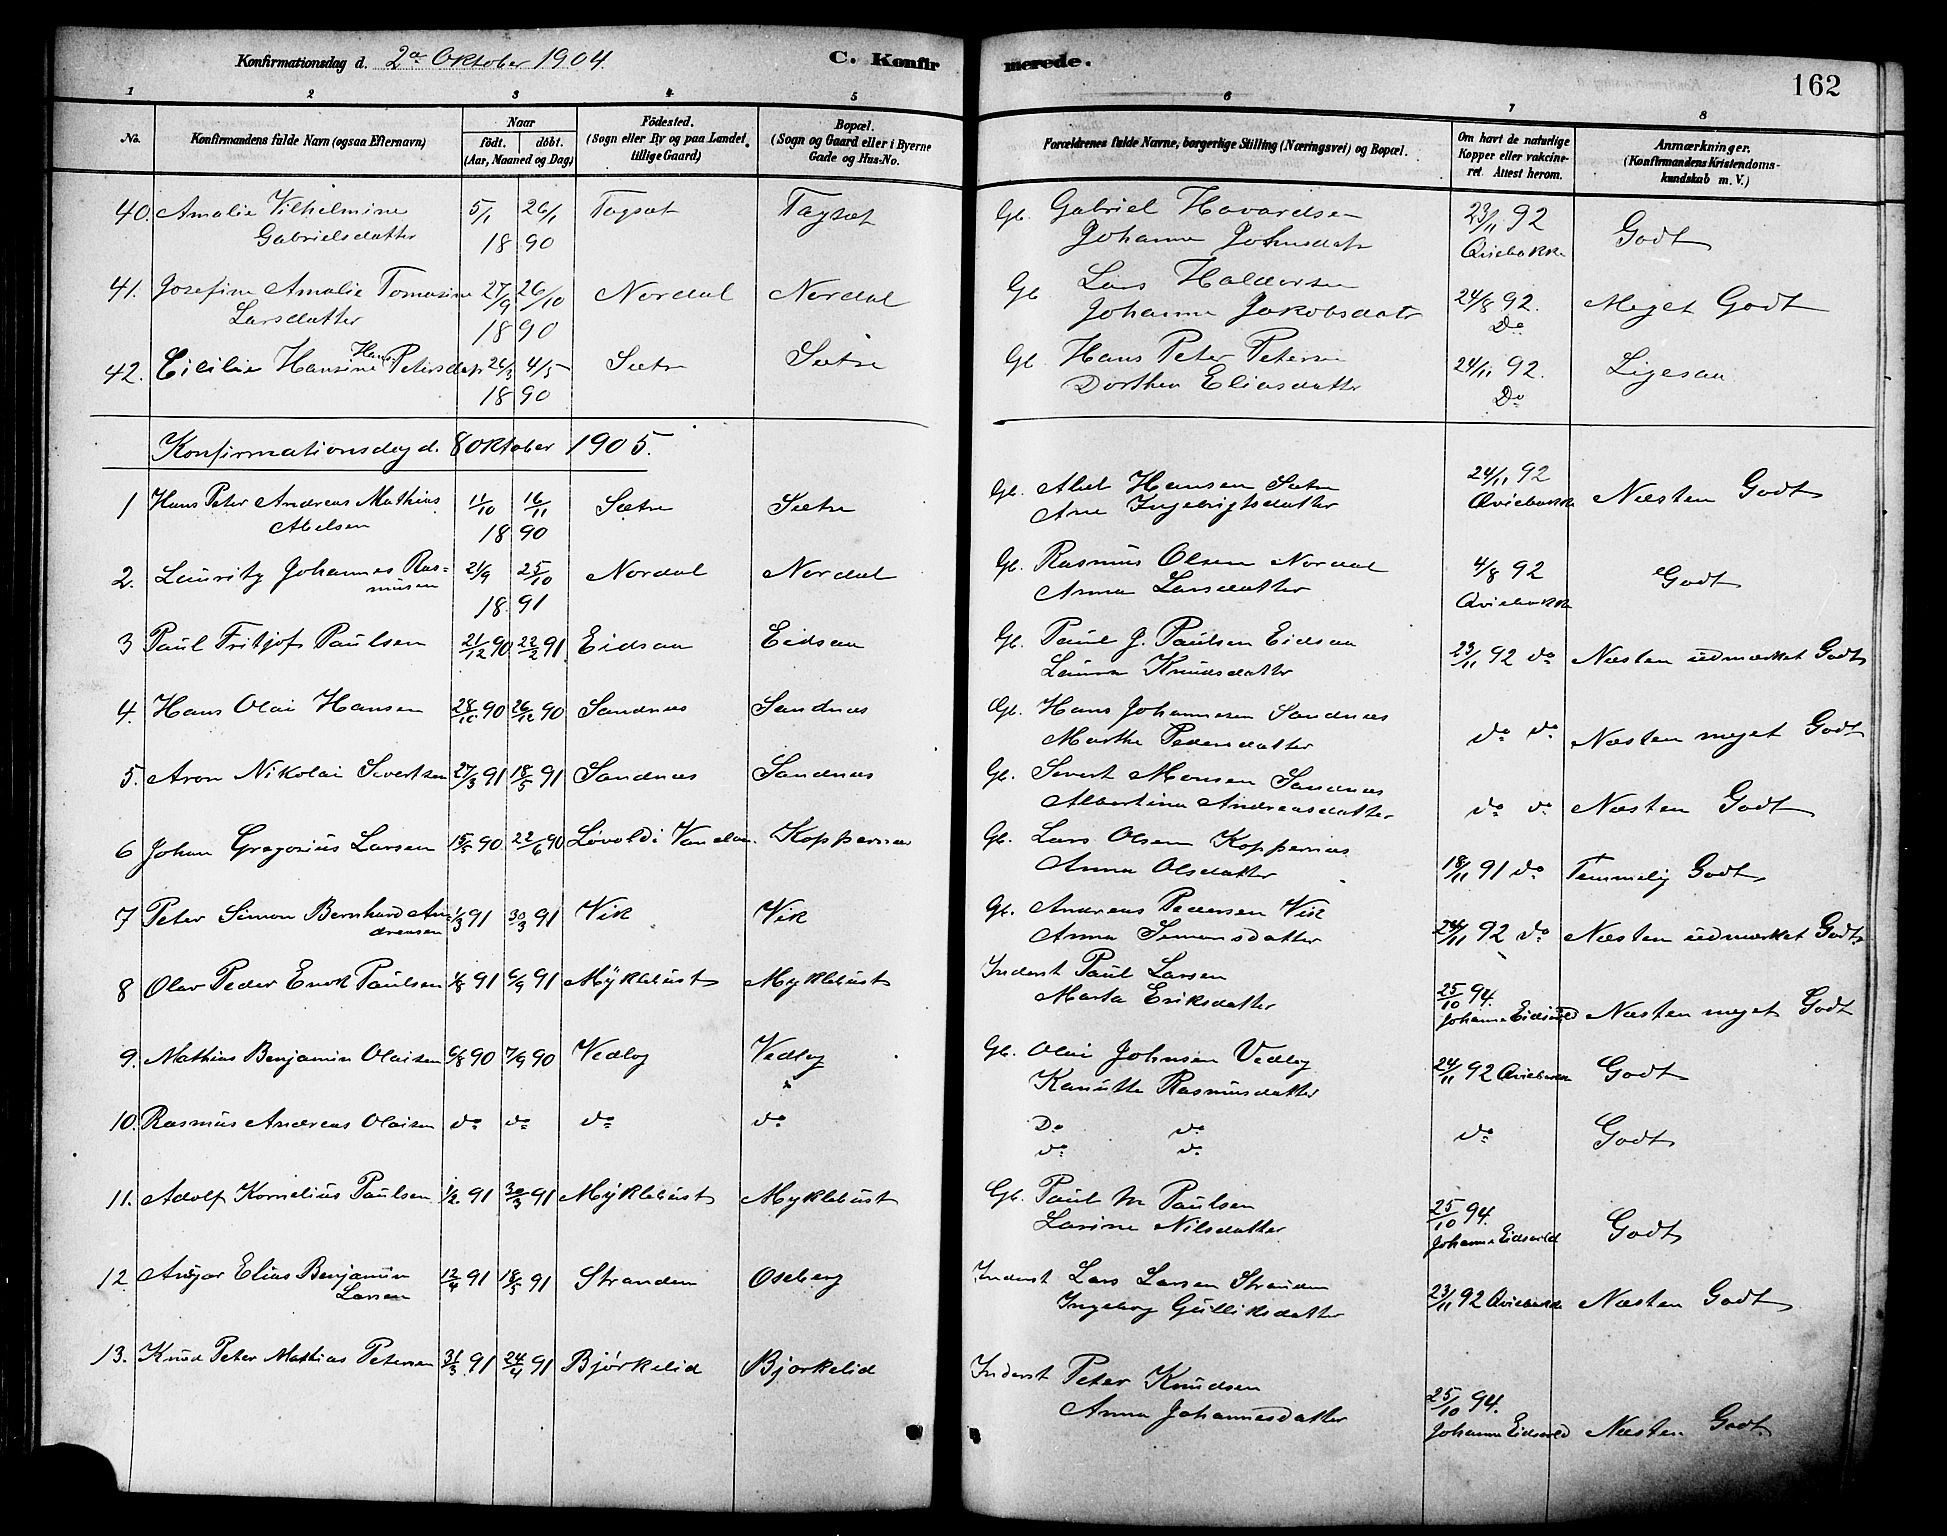 Konfirmationsdag d. 2den Oktober 1904.
C. Konfirmerede.
162
1 2 3 4 5 6 7 8
No.
Konfirmandens fulde Navn (ogsaa Efternavn)
Naar
födt. döbt.
(Aar, Maaned og Dag)
Födested.
(Sogn eller By og paa Landet tillige Gaard)
Bopæl.
(Sogn og Gaard eller i Byerne Gade og Hus-No.
Forældrenes fulde Navne, borgerlige Stilling (Næringsvei) og Bopæl.
Om havt de naturlige Kopper eller vakcineret. Attest herom.
Anmærkninger.
(Konfirmandens Kristendomskundskab m. V.)
40. Amalie Vilhelmine 5/1 26/1 Tagsæt Tagsæt Gb. Gabriel Havardsen 23/11 92 Godt
Gabrielsdatter 18 90 Johanne Johnsdatr Qviebakke
41. Josefine Amalie Tomasine 27/9 26/10 Nordal Nordal Gb Lars Haldorsen 24/8 92. Meget Godt
Larsdatter 18 90 Johanne Jakobsdatr Do
42. Cicilie Hansine Petersdatr 4/5 Sætre Sætre Gb. Hans Peter Petersen 24/11 92. Ligesaa
18 90 Dorthea Eliasdatter Do
Konfirmationsdag d. 8 Oktober 1905.
1 Hans Peter Andreas Mathias 11/10 16/11 Sætre Sætre Gb. Abel Hansen Sætre 24/11 92 Næsten Godt
Abelsen 18 90 Ane Ingebrigtsdatter Qviebakke
2. Lauritz Johannes Ras= 21/9 25/10 Nordal Nordal Gb. Rasmus Olsen Nordal 4/8 92 Godt
musen 18 91 Anna Larsdatter Qviebakke
3 Paul Fritjof Paulsen 21/12 90 22/2 91 Eidsaa Eidsaa Gb. Paul J. Paulsen Eidsaa 23/11 92 do Næsten udmærket Godt
Laura Knudsdatter
4. Hans Olai Hansen 28/10 90 26/12 90 Sandnæs Sandnæs Gb. Hans Johannesen Sandnæs do do Næsten meget Godt
Marthe Pedersdatter
5. Aron Nikolai Sivertsen 27/3 91 18/5 91 Sandnæs Sandnæs Gb. Sivert Monsen Sandnæs do do Næsten Godt
Albertine Andreasdatter
6 Johan Gregorius Larsen 15/5 90 22/6 90 Løvold i Vanelven Koppernæs Gb. Lars Olsen Koppernæs 18/11 91 do Temmelig Godt
Anna Olsdatter
7 Peter Simon Bernhard An= 1/3 91 30/3 91 Vik Vik Gb. Andreas Pedersen Vik 24/11 92 do Næsten udmærket Godt
dreasen Anna Simonsdatter
8 Olav Peder Enok Paulsen 4/8 91 6/9 91 Myklebust Myklebust Inderst Paul Larsen 25/10 94. Næsten meget Godt
Marta Eriksdatter Johanne Eidsvold
9. Mathias Benjamin Olaisen 6/8 90 7/9 90 Vedlog Vedlog Gb. Olai Johnsen Vedlog 24/11 92 Qviebakke Godt
Kanutte Rasmusdatter
10. Rasmus Andreas Olaisen do do do do Do do do Godt
do do
11. Adolf Kornelius Paulsen 1/2 91 30/3 91 Myklebust Myklebust Gb. Paul M Paulsen 25/10 94. Godt
Larine Nilsdatter Johanne Eidsvold
12 Ansgar Elias Benjamin 12/4 91 18/5 91 Stranden Oseberg Inderst Lars Larsen Stranden 23/11 92 Qviebakke Næsten Godt
Larsen Ingeborg Gulliksdatter
13. Knud Peter Mathias Petersen 31/3 91 24/4 91 Bjørkelid Bjorkelid Inderst Peter Knudsen 25/10 94. Næsten Godt
Anna Johannesdatter Johanne Eidsvold